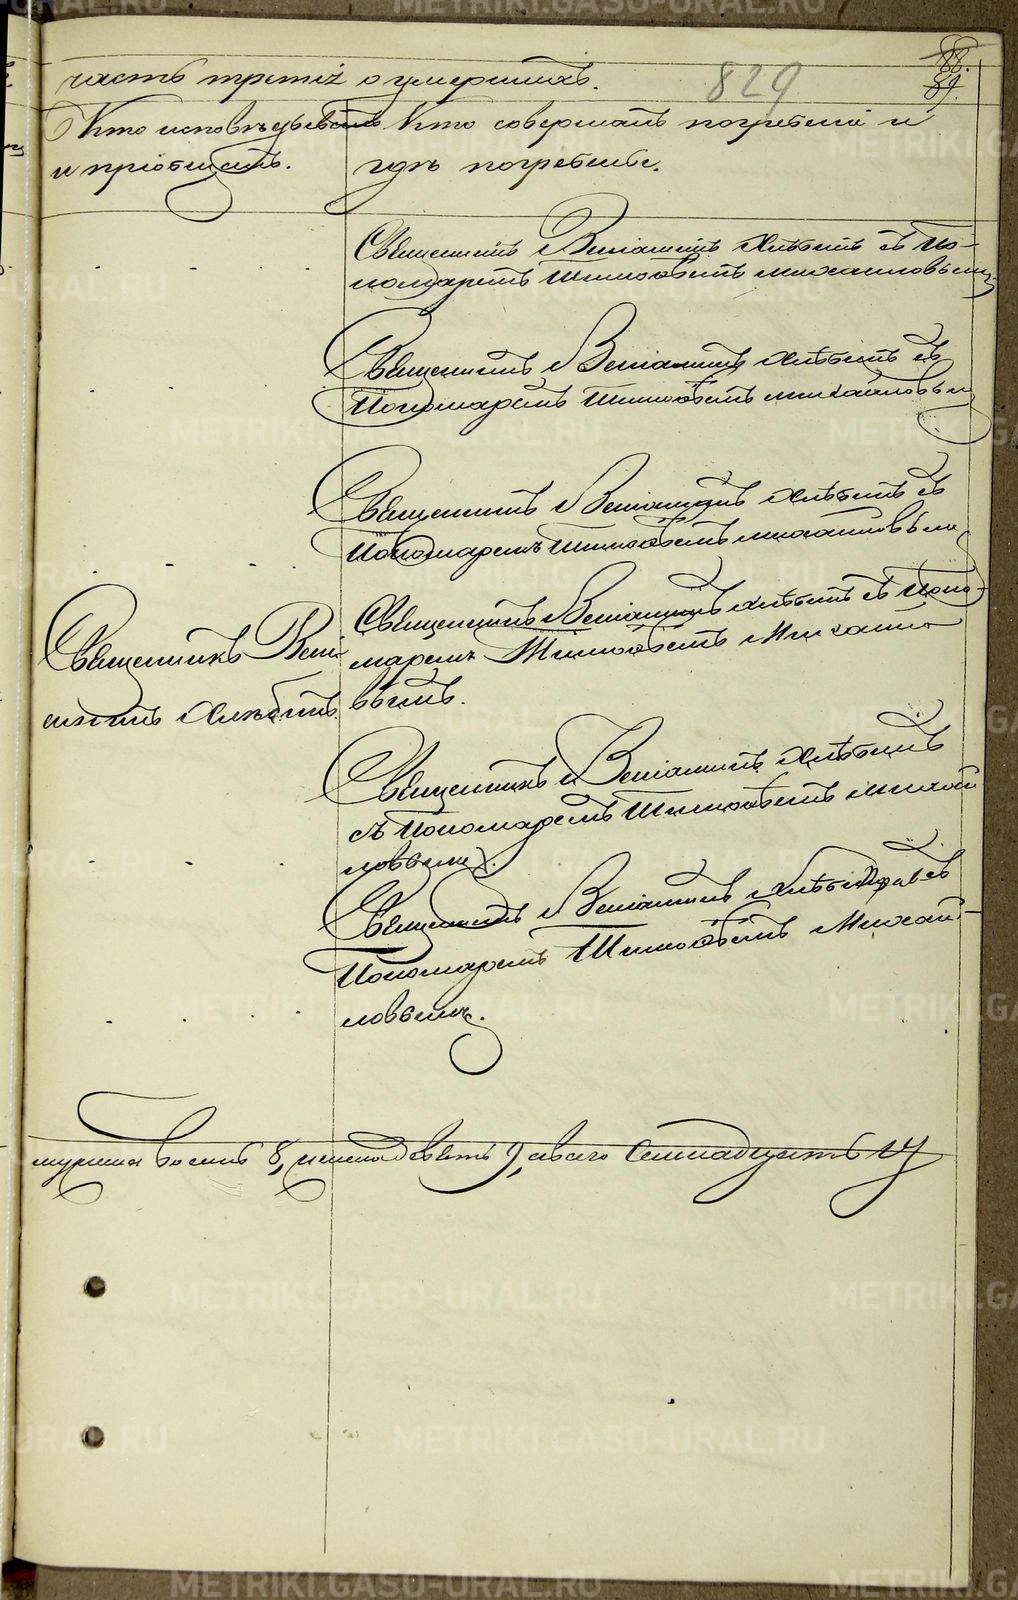 часть третія о умершихъ.
829
88.
89.
Кто исповѣдывалъ
и пріобщалъ.
Кто совершалъ погребеніе и
гдѣ погребены.
Священникъ Веніаминъ Хлѣбинъ съ По-
номаремъ Тимоѳеемъ Михайловымъ.
Священникъ Веніаминъ Хлѣбинъ съ
Пономаремъ Тимоѳеемъ Михайловым
Священникъ Веніаминъ Хлѣбинъ съ
Пономаремъ Тимоѳеемъ Михайловым
Священникъ Вені-
аминъ Хлѣбинъ
Священникъ Веніаминъ Хлѣбинъ съ Поно-
маремъ Тимоѳеемъ Михайло-
вымъ.
Священникъ Веніаминъ Хлѣбинъ
съ Пономаремъ Тимоѳеемъ Михай
ловымъ.
Священникъ Веніаминъ Хлѣбинъ съ
Пономаремъ Тимоѳеемъ Михай-
ловымъ.
мужска восемь 8, женска девять 9, а всего семнадцать 17
METRIKI.GASO-URAL.RU